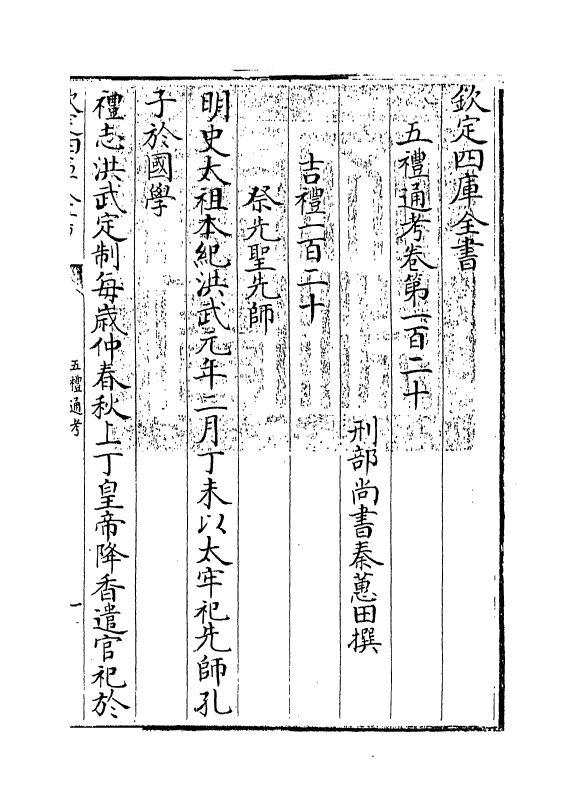 欽定四庫全書
五禮通考卷第一百二十
刑部尚書秦蕙田撰
吉禮一百二十
祭先聖先師
明史太祖本紀洪武元年二月丁未以太牢祀先師孔
子於國學
禮志洪武定制每歲仲春秋上丁皇帝降香遣官祀於
五禮通考
一